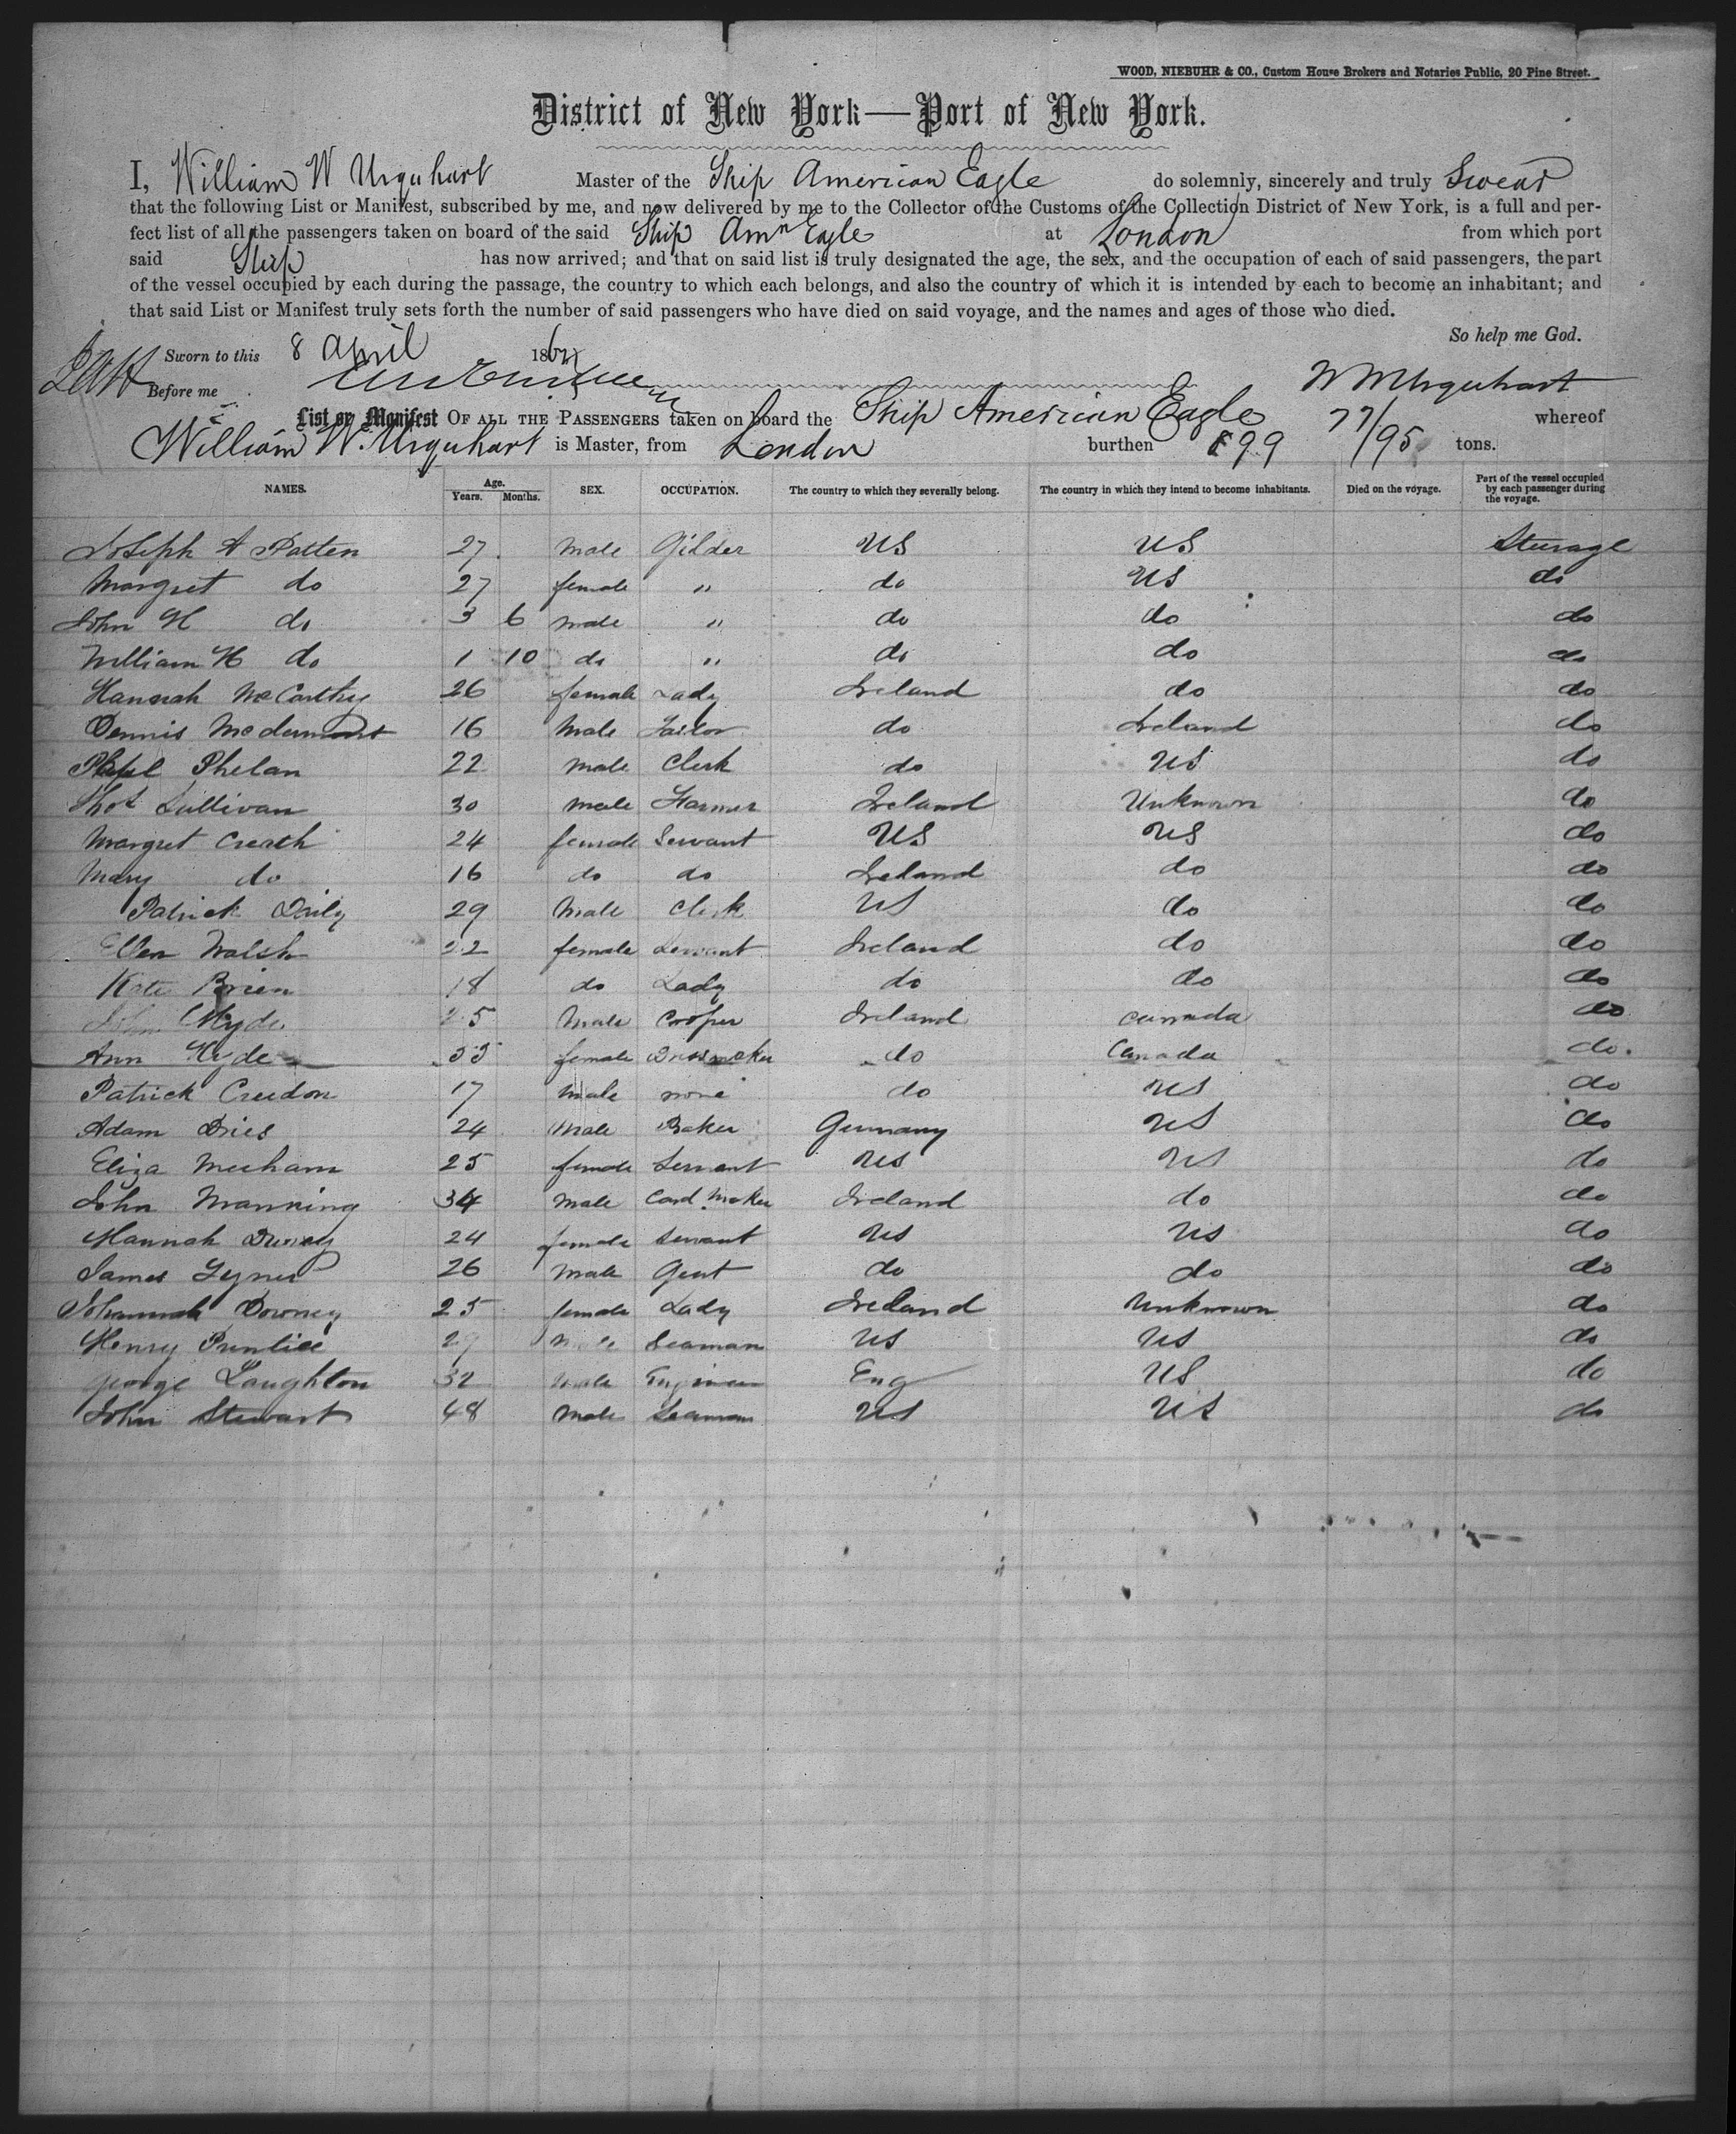 WOOD, NIEBUHR & CO., Custom House Brokers and Notaries Public, 20 Pine Street.
District of New York—Port of New York.
I, William W Urquhart Master of the Ship American Eagle do solemnly, sincerely and truly Swear
that the following List or Manifest, subscribed by me, and now delivered by me to the Collector of the Customs of the Collection District of New York, is a full and per-
fect list of all the passengers taken on board of the said Ship Amn Eagle at London from which port
said Ship has now arrived; and that on said list is truly designated the age, the sex, and the occupation of each of said passengers, the part
of the vessel occupied by each during the passage, the country to which each belongs, and also the country of which it is intended by each to become an inhabitant; and
that said List or Manifest truly sets forth the number of said passengers who have died on said voyage, and the names and ages of those who died.
So help me God.
Sworn to this 8 April 186
Before me W W Urquhart
List or Manifest OF ALL THE PASSENGERS taken on board the Ship American Eagle whereof
William W. Urquhart is Master, from London burthen 899 77/95 tons.
NAMES. Age. Years. Months. SEX. OCCUPATION. The country to which they severally belong. The country in which they intend to become inhabitants. Died on the voyage. Part of the vessel occupied by each passenger during the voyage.
Joseph A Patten 27 male Gilder US US Steurage
Margret do 27 female " do US do
John H do 3 6 male " do do do
William H do 1 10 do " do do do
Hannah McCarthy 26 female Lady Ireland do do
Dennis McDermont 16 Male Tailor do Ireland do
Phelan 22 male Clerk do US do
Thos Sullivan 30 male Farmer Ireland Unknown do
Margret Creath 24 female Servant US US do
Mary do 16 do do Ireland do do
Patrick Daily 29 Male Clerk US do do
Ellen Walsh 22 female Servant Ireland do do
Kate Brien 18 do Lady do do do
John Hyde 25 Male Cooper Ireland Canada do
Ann Hyde 35 female Dressmaker do Canada do.
Patrick Creedon 17 male none do US do
Adam Dries 24 Male Baker Germany US do
Eliza Meeham 25 female Servant US US do
John Manning 34 Male Card Maker Ireland do do
Hannah 24 female Servant US US do
James 26 Male Gent do do do
Johannah Downey 25 female Lady Ireland Unknown do
Henry Prentice 29 Male Seaman US US do
George Laughton 32 Male Engineer Eng US do
John Stewart 48 Male Seaman US US do